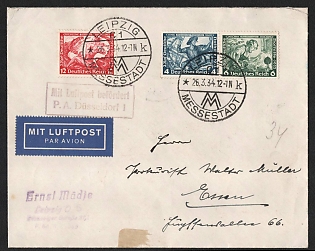 LEIPZIG
C1
* 26.3.34.12-1N k
MESSESTADT
12 Deutsches Reich
Deutsches Reich 4
6 Deutsches Reich 6
LEIPZIG
* 26.3.34.12-1N k
MESSESTADT
Mit Luftpost befördert
P. A. Düsseldorf 1
MIT LUFTPOST
PAR AVION
34
Herrn
Prokurist Walter Müller
Essen
66.
Ernst Mädje